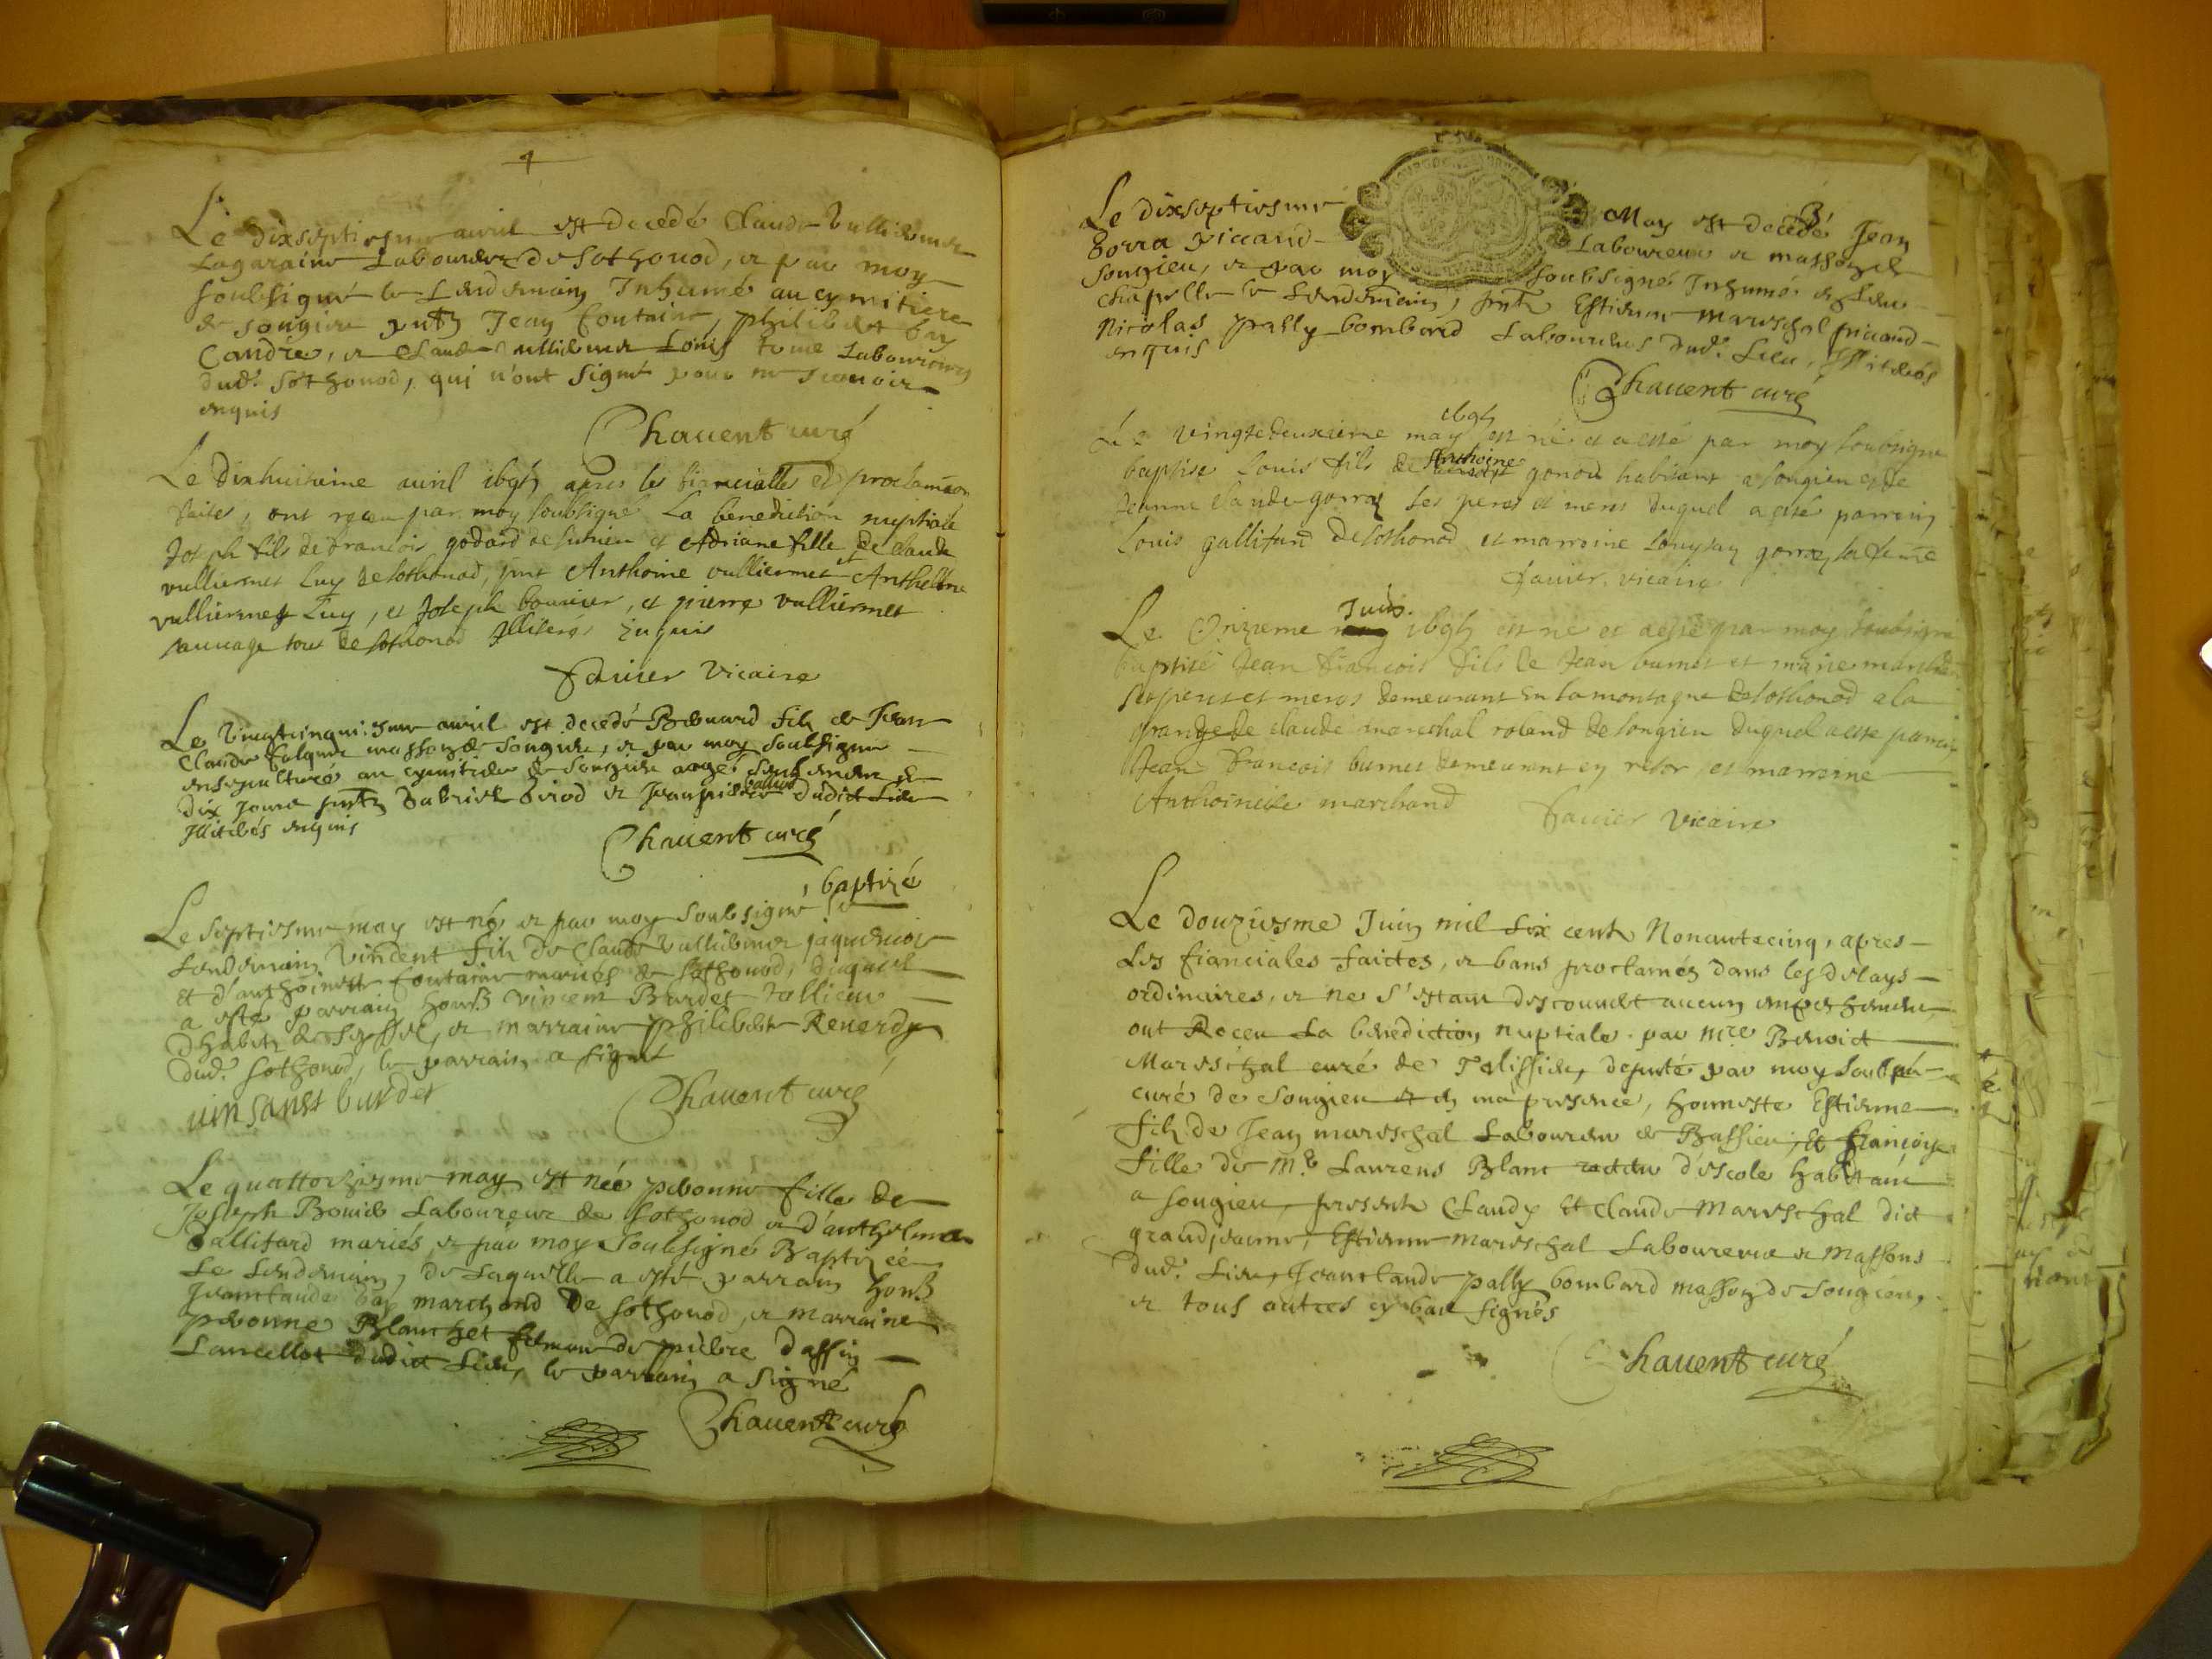 4
Le dixseptiesme auril est decedé Claude Vulliermet
Lagaraine Laboureur de Sothonod, et par moy
soubsigné le Lendemain Inhumé au cymitiere
de songieu pntz Jean fontaine, philibert bay
Candie, et Claude Vulliermet Louis tome Laboureurs
dud. Sothonod, qui n'ont signé pour ne scauoir
enquis
Chauent curé
Le dixhuitieme auril 1695 apres les fianciailles et proclamaon
faites, ont receu par moy soubsigné La benediction nuptiale
Joseph fils de francois godard de et Adriane fille de Claude
vulliermet Luy de sothonod, pnt Anthoine vulliermet et Anthelme
vulliermet Luy, et Joseph bouuier, et pierre vulliermet
sauuage tous de sothonod Illiterés enquis
fauier vicaire
Le Vingtcinquiesme auril est decedé Bernard filz de Jean
Claude masson de Songieu, et par moy soubsigné
ensepulturé au cymitiere de Songieu aagé seulement de
dix Jours pntz Gabriel et dudict Lieu
Illiterés enquis
Chauent curé
baptizé
Le septiesme may est né et par moy soubsigné le
Lendemain Vincent filz de Claude Vulliermet jaquemoz
et d'anthoinette fontaine mariés de sothonod, duquel
a esté parrain hons Vincent Burdet
dhabit. de Seyssel, et marraine philiberte Reuerdy
dud. Sothonod, le parrain a signé
uinsanst burdet
Chauent curé
Le quattorziesme may est née peronne fille de
Joseph Bouuier Laboureur de sothonod et d'anthelmaz
Gallifard mariés, et par moy soubsigné Baptizée
Le Lendemain, de Laquelle a esté parrain hons
Jeanclaude bay marchand de sothonod, et marraine
peronne Blanchet femme de pierre dassin
Lancellot dudict Lieu, le parrain a signé
Chauent curé
3
Le dixseptiesme May est decedé Jean
gorra piccand Laboureur et masson de
songieu, et par moy soubsigné Inhumé
chapelle le Lendemain, pntz Estienne mareschal piccand
Nicolas pally bombard Laboureurs dud. Lieu, Illiterés
enquis
Chauent curé
Le vingtedeuxieme may 1695 est né et a esté par moy soubsigné
baptisé Louis fils de Anthoine gonod habitant a songieu et de
Jeanne claude gorraz ses peres et meres duquel a esté parrein
Louis gallifard de sothonod et marreine gorraz sa feme
fauier vicaire
Le Onzieme Juin 1695 est né et a esté par moy soubsigné
baptisé Jean francois fils de Jean burnet et marie marchand
ses peres et meres demeurant en la montagne de sothonod a la
grange de claude mareschal roland de songieu duquel a esté parrein
Jean francois burnet demeurant en et marreine
Anthoinette marchand
fauier vicaire
Le douziesme Juin mil six cents Nonantecinq, apres
Les fianciales faictes, et bans proclamés dans les delays
ordinaires, et ne s'estant descouuert aucun empeschement
ont Receu La benediction nuptiale par mre Benoict
Mareschal curé de Talissieu, deputé par moy soubsné
curé de Songieu et en ma presence, honneste Estienne
filz de Jean mareschal Laboureur de Bassieu, et françoise
fille de Me Laurens Blanc recteur d'escole habitant
a songieu, presents Claudy et claude mareschal dict
grandjeanne, Estienne mareschal Laboureurs et massons
dud. Lieu, Jeanclaude pally bombard masson de songieu,
et tous autres cy bas signés
Chauent curé